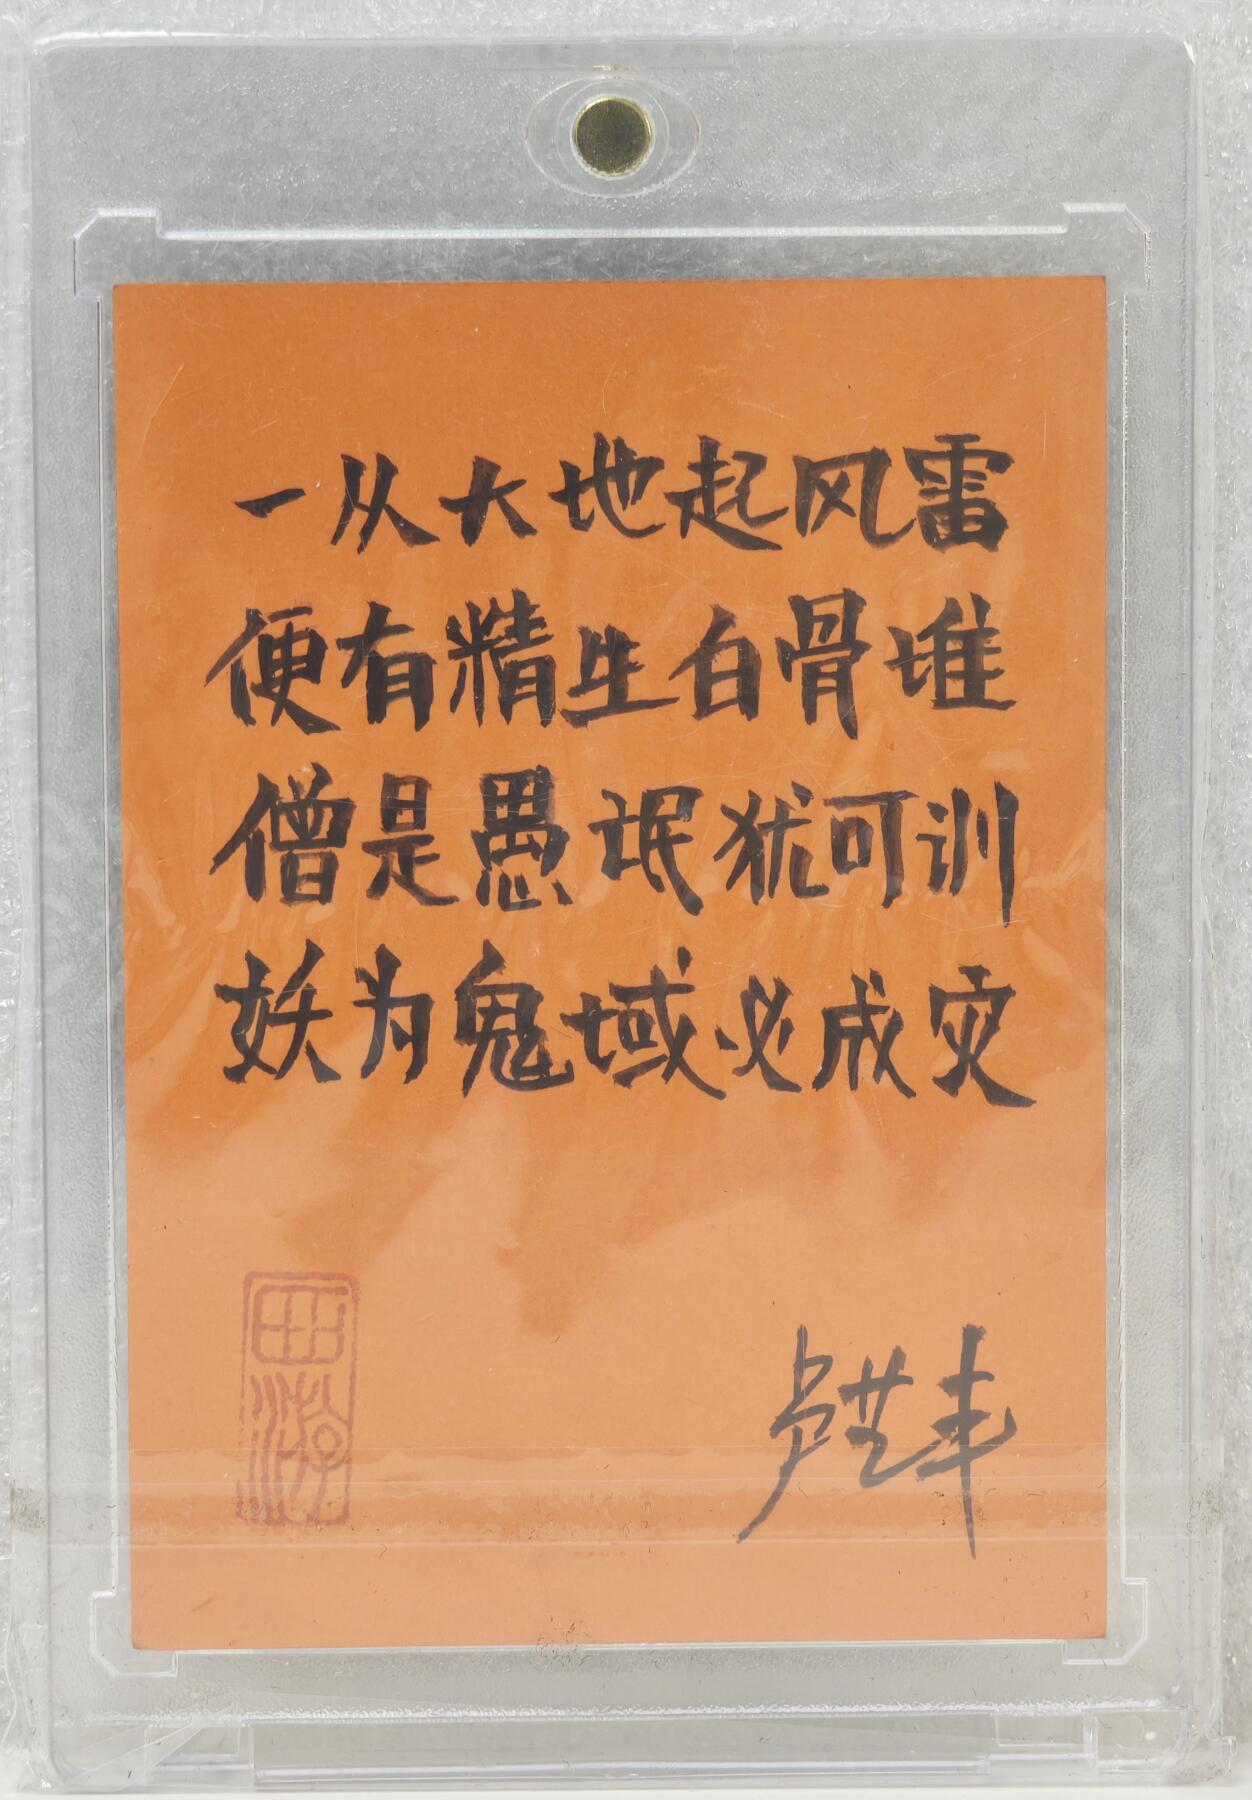 一从大地起风雷
便有精生白骨堆
僧是愚氓犹可训
妖为鬼域必成灾
西游
卢世丰